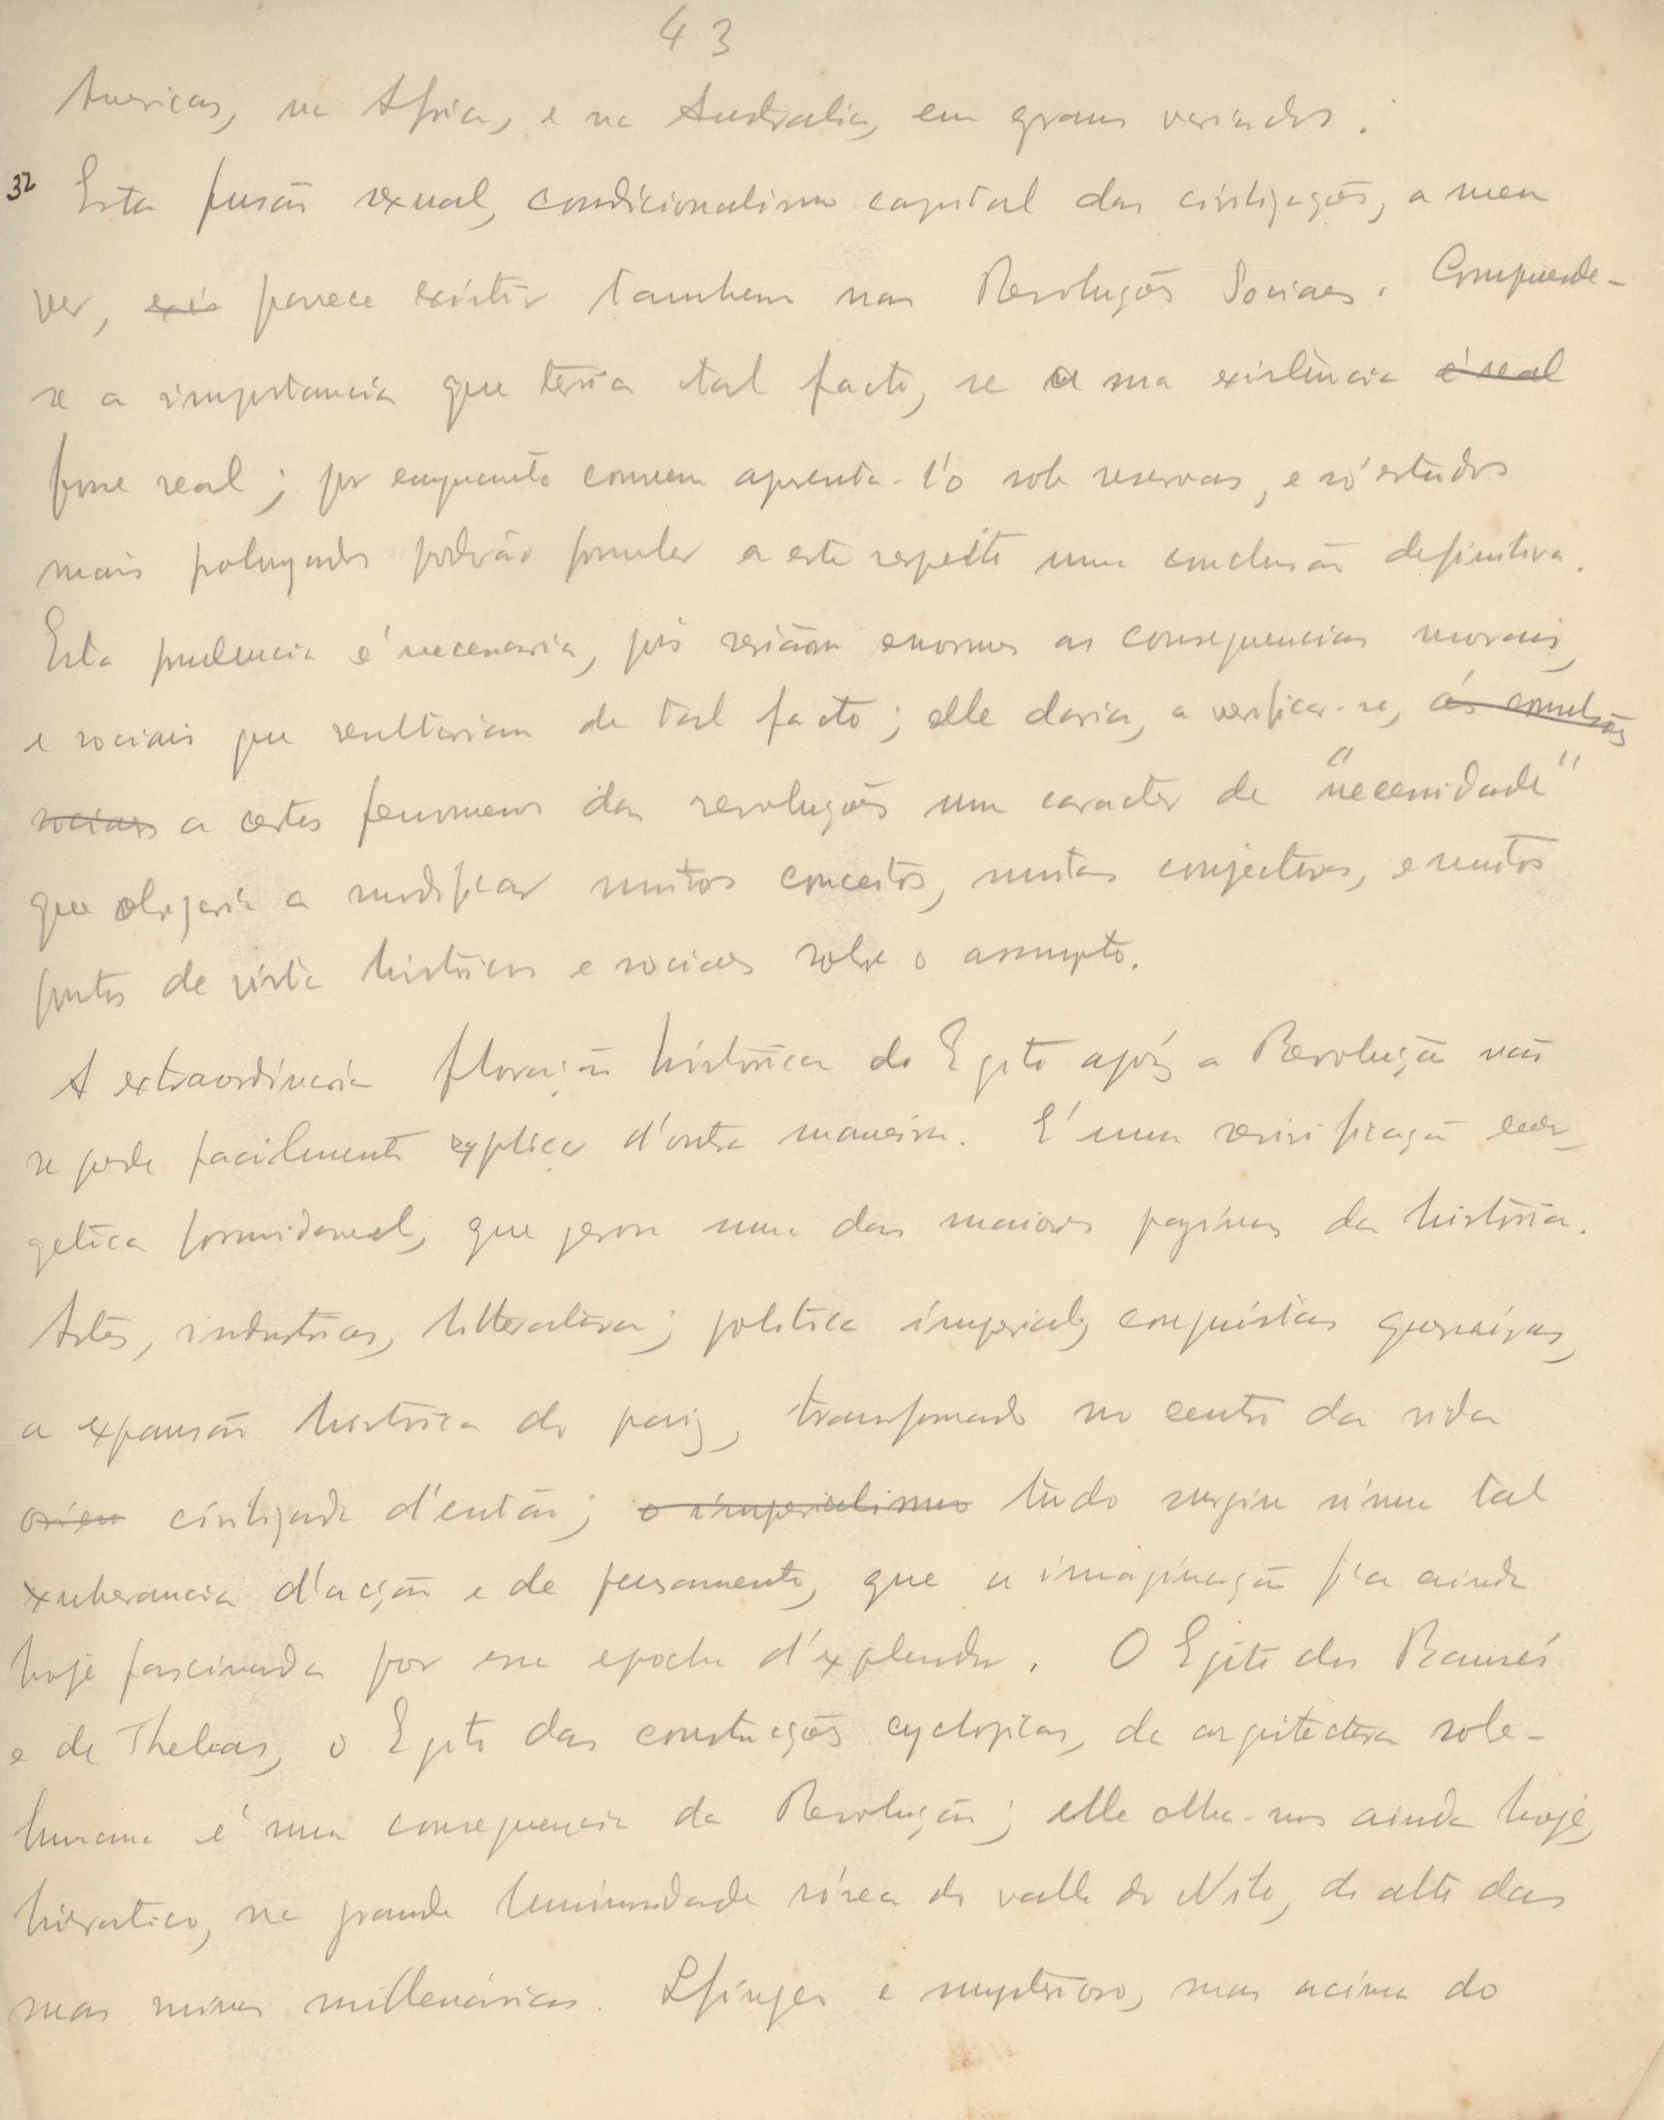 43
Americas, na Africa, e na Australia, em graus variados.
32 Esta fusão sexual, condicionalismo capital das civilizações, a meu
ver, exis parece existir tambem nas Revoluções Sociaes. Comprehende-
se a importancia que teria tal facto, se a sua existência é real
fosse real; por emquanto convem apresenta-l'o sob reservas, e só estudos
mais prolongados poderão formular a este respeito uma conclusão definitiva.
Esta prudencia é necessaria, pois seriam enormes as consequencias moraes,
e sociais que resultariam de tal facto; elle daria, a verificar-se, ás convulsões
sociaes a certos fenomenos das revoluções um caracter de "necessidade"
que obrigaria a modificar muitos conceitos, muitas conjecturas, e muitos
pontos de vista historicos e sociaes sobre o assumpto.
A extraordinaria floração historica do Egito após a Revolução não
se pode facilmente explicar d'outra maneira. E' uma revivificação ener-
getica formidavel, que gerou uma das maiores paginas da historia.
Artes, industrias, litteratura; politica imperial, conquistas guerreiras,
a expansão historica do paiz, transformado no centro da vida
orien civilizada d'então; o imperialismo tudo surgiu n'uma tal
exuberancia d'acção e de pensamento, que a imaginação fica ainda
hoje fascinada por essa epocha d'explendor. O Egito dos Ramsés
e de Thebas, o Egito das construções cyclopicas, da arquitectura sobre-
humana é uma consequencia da Revolução; elle olha-nos ainda hoje,
hieratico, na grande luminosidade rósea do valle do Nilo, do alto das
suas ruinas millenárias. Esfinger e mysterioso, mas acima do